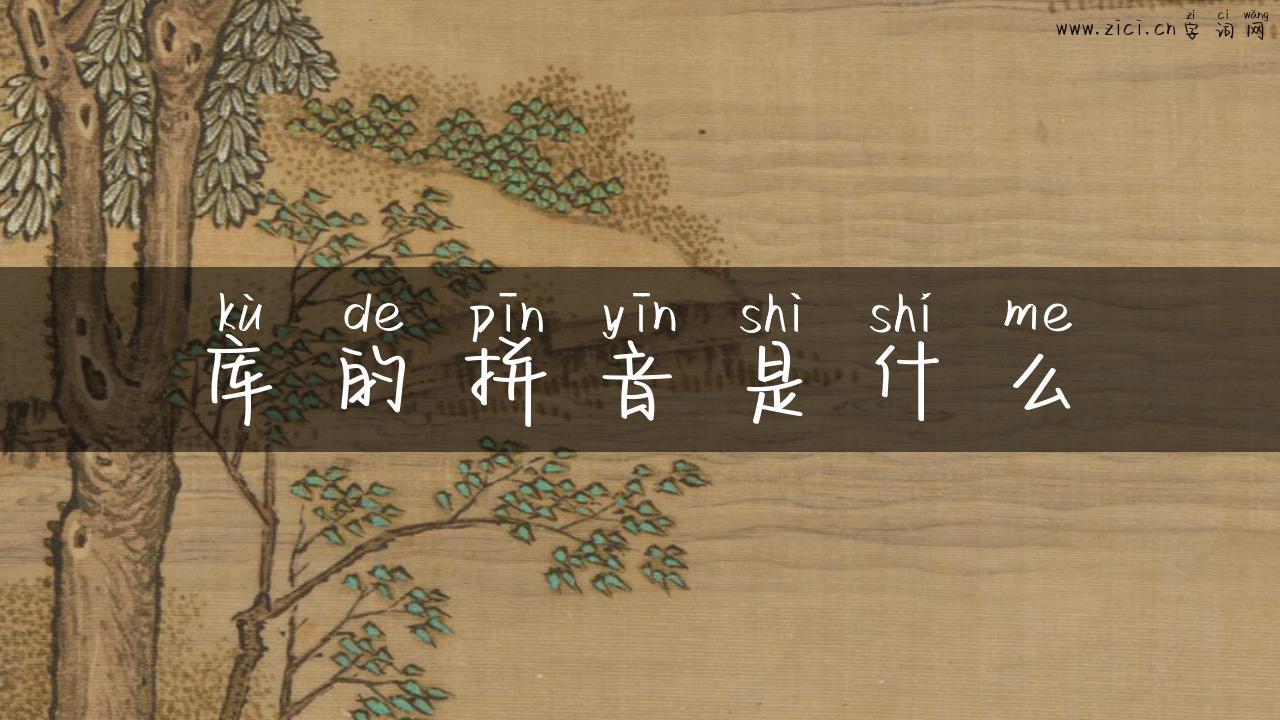 zì cí wǎng
www.zici.cn 字词网
kù de pīn yīn shì shí me
库的拼音是什么